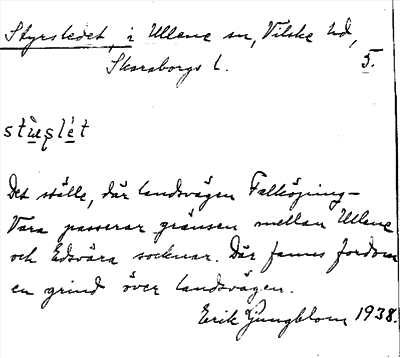 Styrsledet, i Ullene sn, Vilske hd,
Skaraborgs l. 5.
Det ställe, där landsvägen Falköping-
Vara passerar gränsen mellan Ullene
och Edsvära socknar. Där fanns fordom
en grind över landsvägen.
Erik Ljungblom 1938.